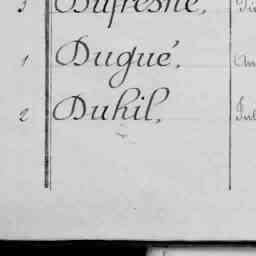 3 Dufresne,
1 Dugué,
2 Duhil,